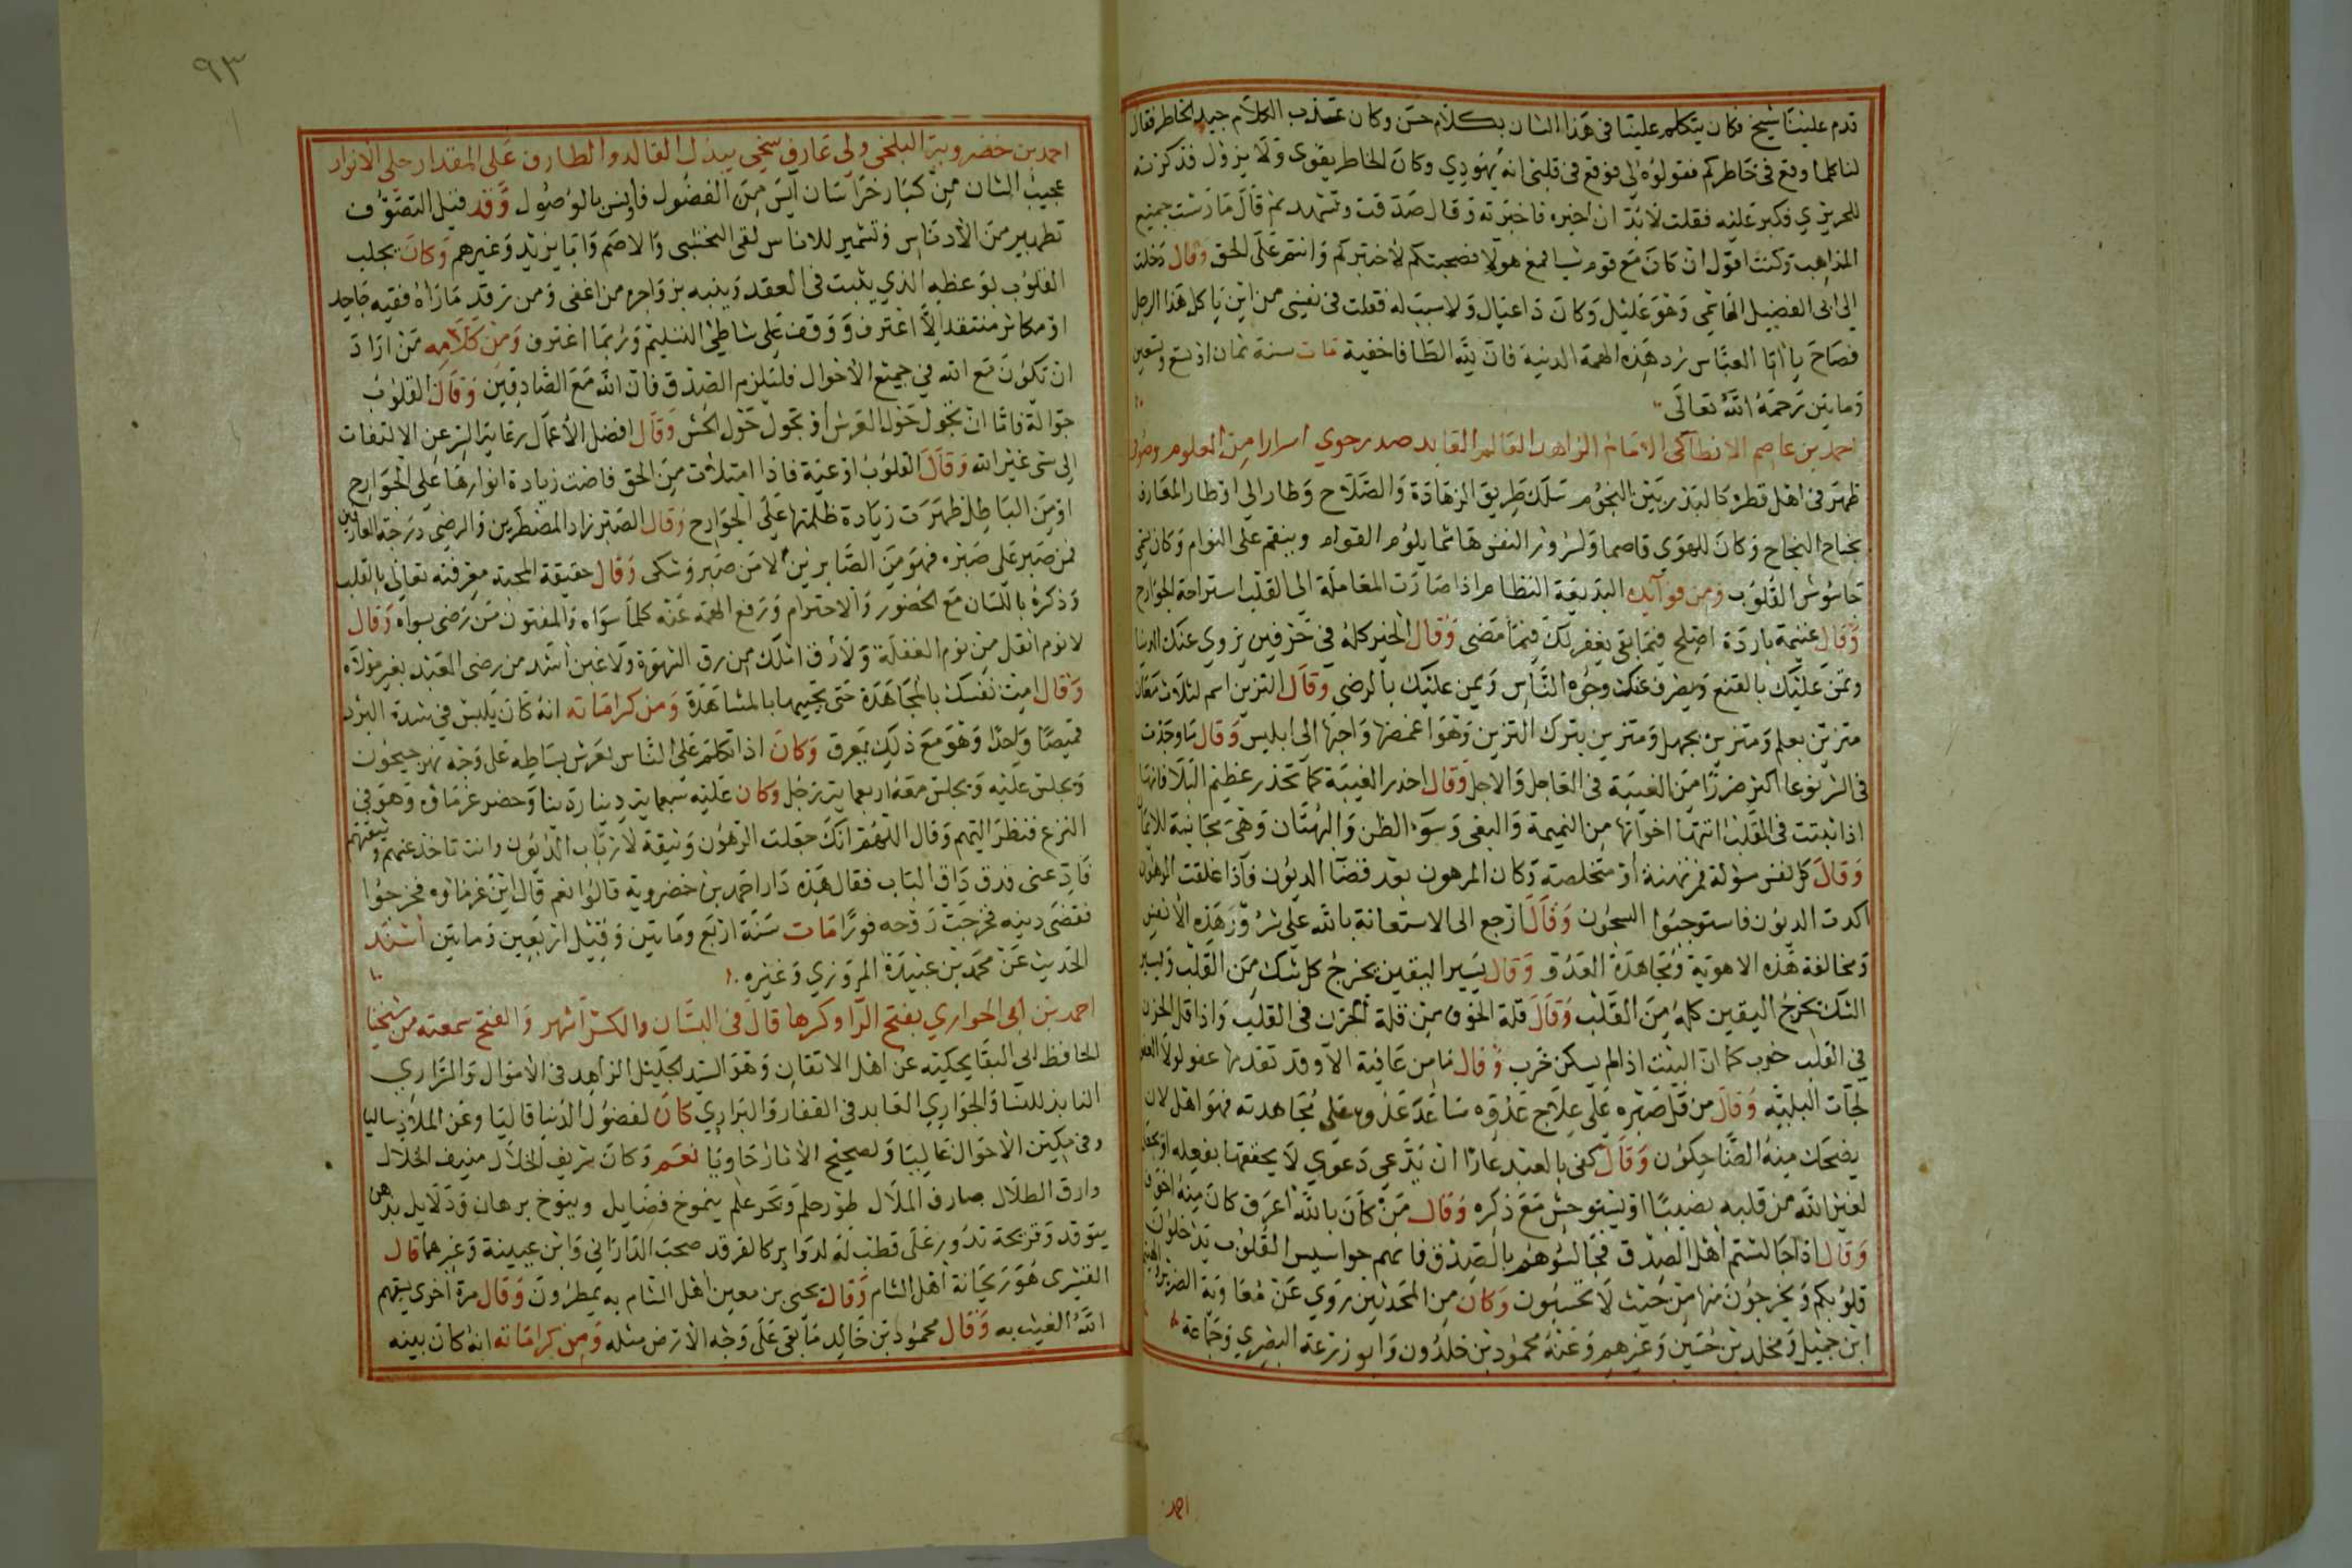 قدم علينا شيخ فكان يتكلم علينا فى هذا الشان بكلام حسن وكان عذب الكلام جيد الخاطر فقال
لنا كلما وقع فى خاطركم فقولوه لى فوقع فى قلبى انه يهودي وكان الخاطر يقوى ولا يزول فذكرته
للحريري فكبر عليه فقلت لا بد ان اخبره فاخبرته وقال صدقت وتشهد ثم قال مارست جميع
المذاهب وكنت اقول ان كان مع قوم شيا فمع هولا فصحبتكم لاختبركم وانتم على الحق وقال دخلت
الى ابى الفضيل الهاشمى وهو عليل وكان ذا عيال ولا سبب له فقلت فى نفسى من اين ياكل هذا الرجل
فصاح يا ابا العباس رد هذه الهمة الدنية فان لله الطافا خفية مات سنة ثمان او تسع وتسعين
ومايتين رحمه الله تعالى
احمد بن عاصم الانطاكى الامام الزاهد العالم العابد صدر حوي اسرارا من العلوم
ظهر فى اهل قطره كالبدر بين النجوم سلك طريق الزهادة والصلاح وطار الى اوطار المعارف
بجناح النجاح وكان للهوى قاصما ولشرور النفس هاشما يلوم القوام وينقم على النوام وكان يسمى
جاسوس القلوب ومن فوآيده البديعة النظام اذا صارت المعاملة الى القلب استراحة الجوارح
وقال غنيمة باردة اصلح فيما بقى يغفر لك فيما مضى وقال الخير كله فى حرفين يزوي عنك الدنيا
ويمن عليك بالقنع ويصرف عنك وجوه الناس ويمن عليك بالرضي وقال التزين اسم لثلاث معان
متزين بعلم ومتزين بجهل ومتزين بترك التزين وهو اغمضها واحبها الى ابليس وقال ما وجدت
فى الشر نوعا اكثر ضررا من الغيبة فى العاجل والاجل وقال احذر الغيبة كما تحذر عظيم البلا فانها
اذا ثبتت فى القلب انتها اخواتها من النميمة والبغى وسوء الظن والبهتان وهى مجانبة للايمان
وقال كل نفس مسؤلة فمرتهنة او متخلصة وكان المرهون بعد قضا الديون فاذا غلقت الرهون
اكدت الديون فاستوجبوا السجون وقال ارجع الى الاستعانة بالله على شرور هذه الانفس
ومخالفة هذه الاهوية ومجاهدة العدو وقال يسير اليقين يخرج كل شك من القلب ويسير
الشك يخرج اليقين كله من القلب وقال قلة الخوف من قلة الحزن فى القلب واذا قل الحزن
فى القلب خرب كما ان البيت اذا لم يسكن خرب وقال ما من عافية الا وقد تقدمها عفو لولا العفو
لجآت البلية وقال من قل صبره على علاج عدوه ساعد عدوه على مجاهدته فهو اهل لان
يضحك منه الضاحكون وقال كفى بالعبد عارا ان يدعى دعوى لا يحققها بفعله او يجعل
لغير الله من قلبه نصيبا او يستوحش مع ذكره وقال من كان بالله اعرف كان منه اخوف
وقال اذا جالستم اهل الصدق فجالسوهم بالصدق فانهم جواسيس القلوب يدخلون
قلوبكم ويخرجون منها من حيث لا تحسبون وكان من المحدثين روي عن معاوية الضرير
ابن جميل ومخلد بن حسين وغيرهم وعنه محمود بن خلدون وابو زرعة البصري وجماعة
احمد
٩٣
احمد بن خضروية البلخى ولى عارف سخى يبذل التالد والطارف على المقدار جلى الانوار
عجيب الشان من كبار خراسان آيس من الفضول فاونس بالوصول وقد قيل التصوف
تطهير من الأدناس وتشمير للاناس لقى النخشبى والاصم وابا يزيد وغيرهم وكان يجلب
القلوب بوعظه الذي يثبت فى العقد وينبه بزواجره من اغفى ومن رقد ما راه فقيه جاحد
او مكابر منتقد إلا اعترف ووقف على شاطئ التسليم وربما اغترف ومن كلامه من اراد
ان تكون مع الله في جميع الأحوال فليلزم الصدق فان الله مع الصادقين وقال القلوب
جوالة فاما ان تجول حول العرش أو تجول حول الحش وقال افضل الأعمال رعاية السر عن الالتفات
الى شى غير الله وقال القلوب اوعية فاذا امتلأت من الحق فاضت زيادة انوارها على الجوارح
او من الباطل ظهرت زيادة ظلمتها على الجوارح وقال الصبر زاد المضطرين والرضى درجة العارفين
فمن صبر على صبره فهو من الصابرين لا من صبر وشكى وقال حقيقة المحبة معرفته تعالى بالقلب
وذكره باللسان مع الحضور والاحترام ورفع الهمة عنه كلما سواه والمفتون من رضى بسواه وقال
لا نوم اثقل من نوم الغفلة ولا رق املك من رق الشهوة ولا غبن اشد من رضى العبد بغير مولاه
وقال امت نفسك بالمجاهدة حتى تحييها بالمشاهدة ومن كراماته انه كان يلبس في شدة البرد
قميصا واحدا وهو مع ذلك يعرق وكان اذا تكلم على الناس يفرش بساطه على وجه نهر جيحون
ويجلس عليه ويجلس معه اربعماية رجل وكان عليه سبعماية دينار دينا وحضر غرماوه وهو فى
النزع فنظر اليهم وقال اللهم انك جعلت الرهون وثيقة لارباب الديون وانت تاخذ عنهم وثيقتهم
فاد عنى فدق داق الباب فقال هذه دار احمد بن خضروية قالوا نعم قال اين غرماوه فخرجوا
فقضى دينه فخرجت روحه فورا مات سنة اربع ومايتين وقيل اربعين ومايتين اسند
الحديث عن محمد بن عبيدة المروزي وغيره
احمد بن ابى الحواري بفتح الرا وكسرها قال فى البتان والكسر اشهر والفتح سمعته من شيخنا
الحافظ ابى البقا يحكيه عن اهل الاتقان وهو السيد الجليل الزاهد فى الاموال والسراري
النابذ للنساء والجواري العابد فى القفار والبراري كان لفضول الدنيا قاليا وعن الملاذ ساليا
وفى مكين الاحوال عاليا ولصحيح الاثار حاويا نعم وكان شريف الخلال منيف الخلال
وارق الطلال صارف الملال طود حلم وبحر علم بنموخ فضايل وبيوخ برهان ودلايل بذهن
يتوقد وقريحة تدور على قطب له لدوا بر كالفرقد صحب الدارانى وابن عيينة وغيرهما قال
القشيرى هو ريحانة اهل الشام وقال يحيى بن معين اهل الشام به يمطرون وقال مرة أخرى يسقيهم
الله الغيث به وقال محمود بن خالد ما بقى على وجه الارض مثله ومن كراماته انه كان بينه